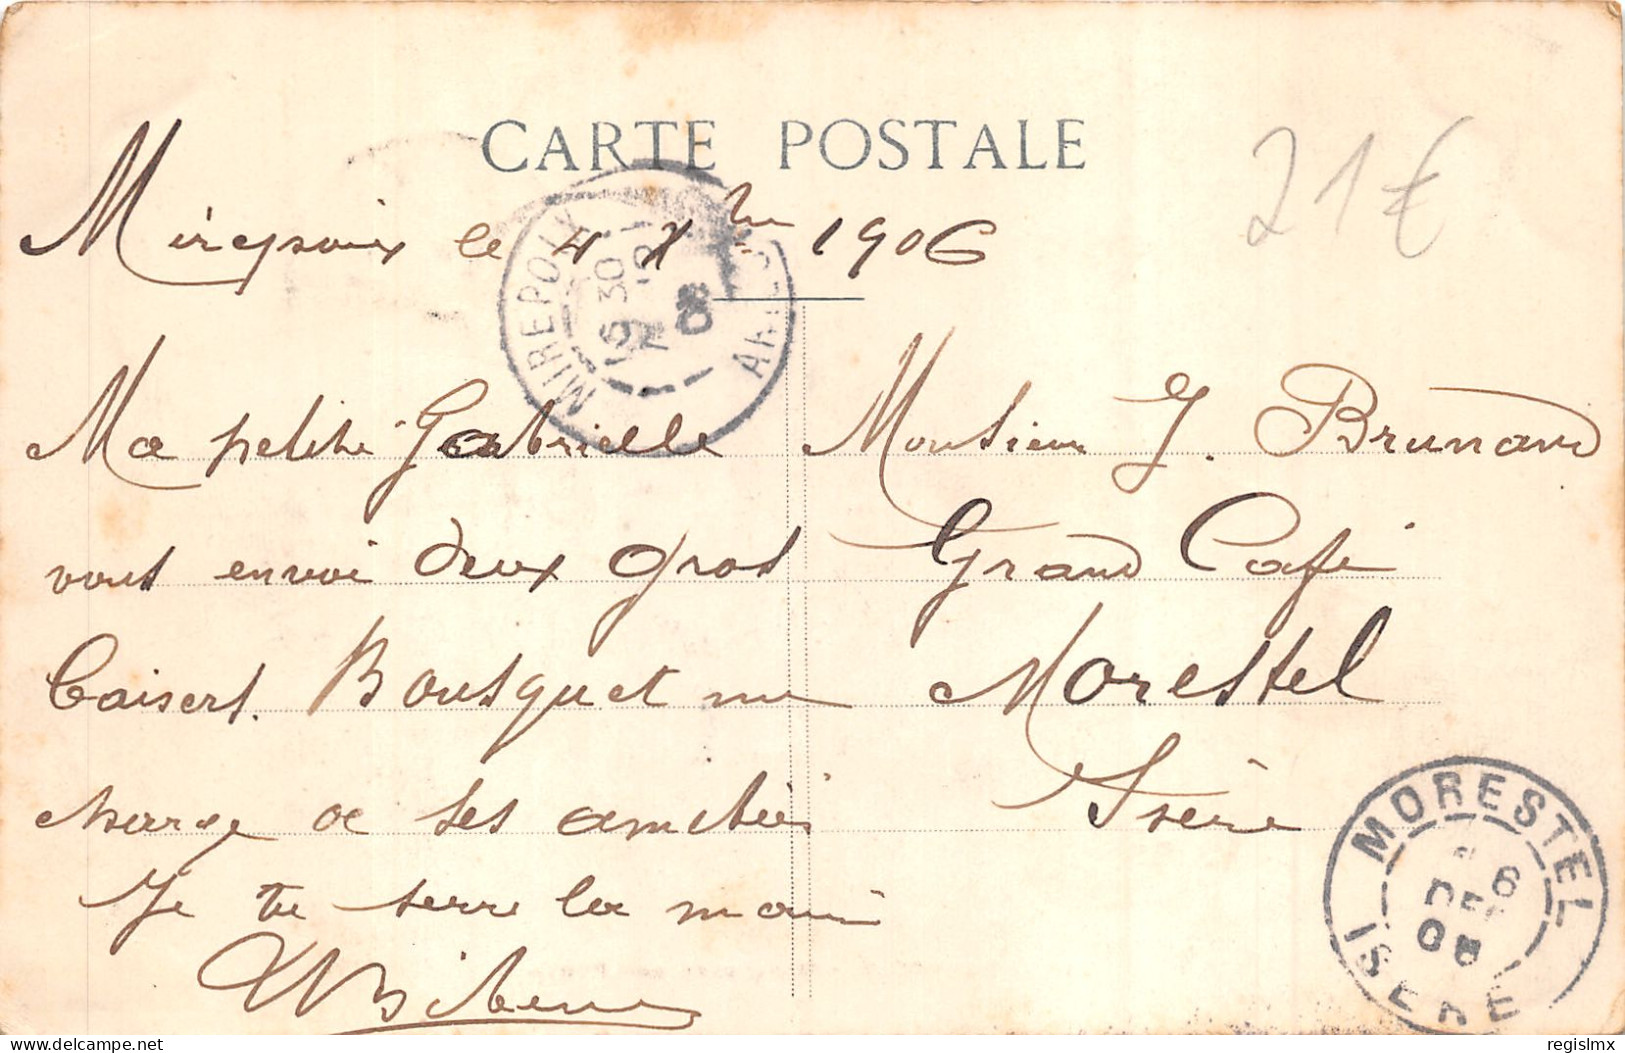 CARTE POSTALE
21€
Mirepoix le 4 Xbre 1906
MIREPOIX
30
Ma petite Gabrielle
vous envoi deux gros
baisers. Bousquet me
charge de ses amitiés
Je te serre la main
Monsieur J. Brunand
Grand Café
Morestel
Isère
MORESTEL
6
DEC
ISERE
www.delcampe.net
regislmx